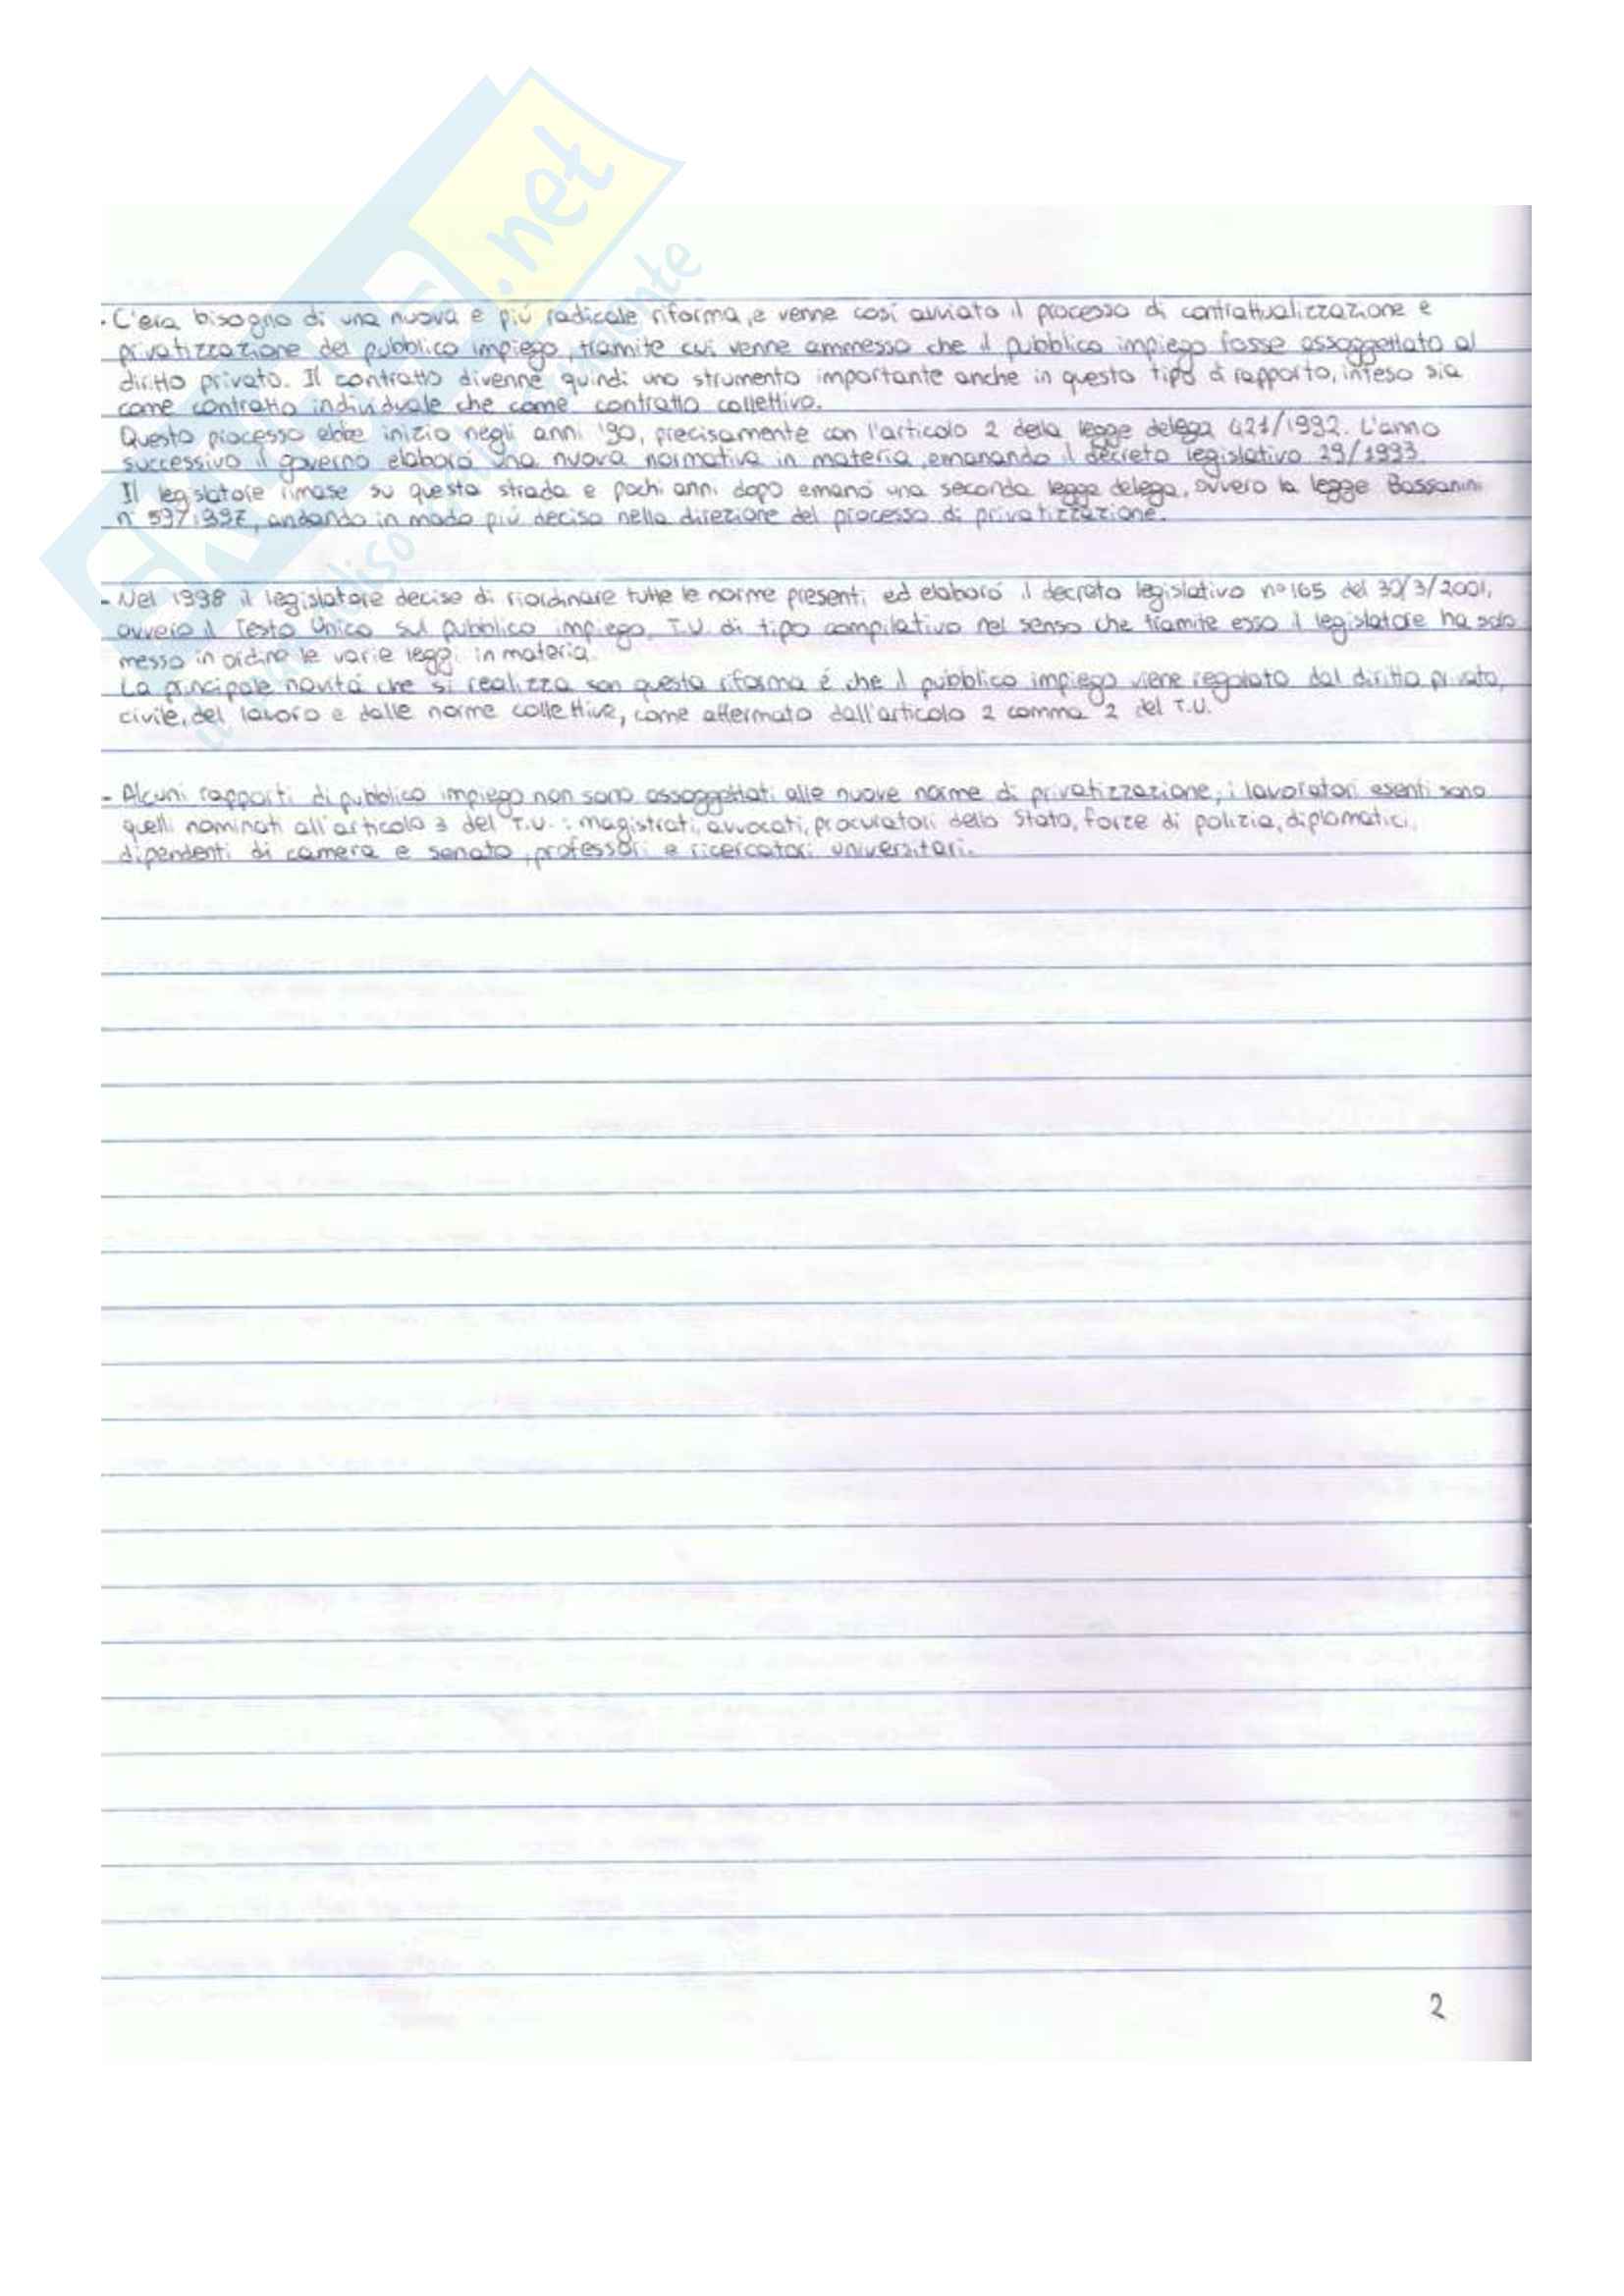 - C'era bisogno di una nuova e più radicale riforma, e venne così avviato il processo di contrattualizzazione e
privatizzazione del pubblico impiego, tramite cui venne ammesso che il pubblico impiego fosse assoggettato al
diritto privato. Il contratto divenne quindi uno strumento importante anche in questo tipo di rapporto, inteso sia
come contratto individuale che come contratto collettivo.
Questo processo ebbe inizio negli anni '90, precisamente con l'articolo 2 della legge delega 421/1992. L'anno
successivo il governo elaborò una nuova normativa in materia, emanando il decreto legislativo 29/1993.
Il legislatore rimase su questa strada e pochi anni dopo emanò una seconda legge delega, ovvero la legge Bassanini
n° 597/1997, andando in modo più deciso nella direzione del processo di privatizzazione.
- Nel 1998 il legislatore decise di riordinare tutte le norme presenti ed elaborò il decreto legislativo n° 165 del 30/3/2001,
ovvero il Testo Unico sul pubblico impiego, T.U. di tipo compilativo nel senso che tramite esso il legislatore ha solo
messo in ordine le varie leggi in materia.
La principale novità che si realizza con questa riforma é che il pubblico impiego viene regolato dal diritto privato,
civile, del lavoro e dalle norme collettive, come affermato dall'articolo 2 comma 2 del T.U.
- Alcuni rapporti di pubblico impiego non sono assoggettati alle nuove norme di privatizzazione, i lavoratori esenti sono
quelli nominati all'articolo 3 del T.U.: magistrati, avvocati, procuratori dello Stato, forze di polizia, diplomatici,
dipendenti di camera e senato, professori e ricercatori universitari.
2
.net